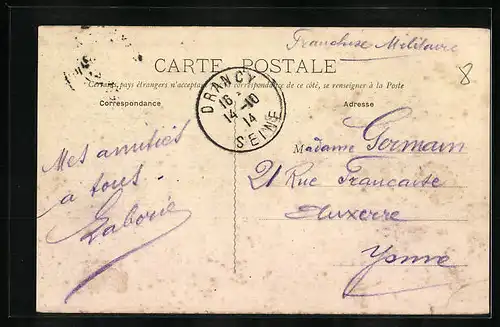 Franchise Militaire
8
CARTE POSTALE
Certains pays étrangers n'acceptant pas la correspondance de ce côté, se renseigner à la Poste
Correspondance
Adresse
DRANCY
16
14-10
14
SEINE
Mes amitiés
à tous
Laborie
Madame Germain
21 Rue Francaise
Auxerre
Yonne